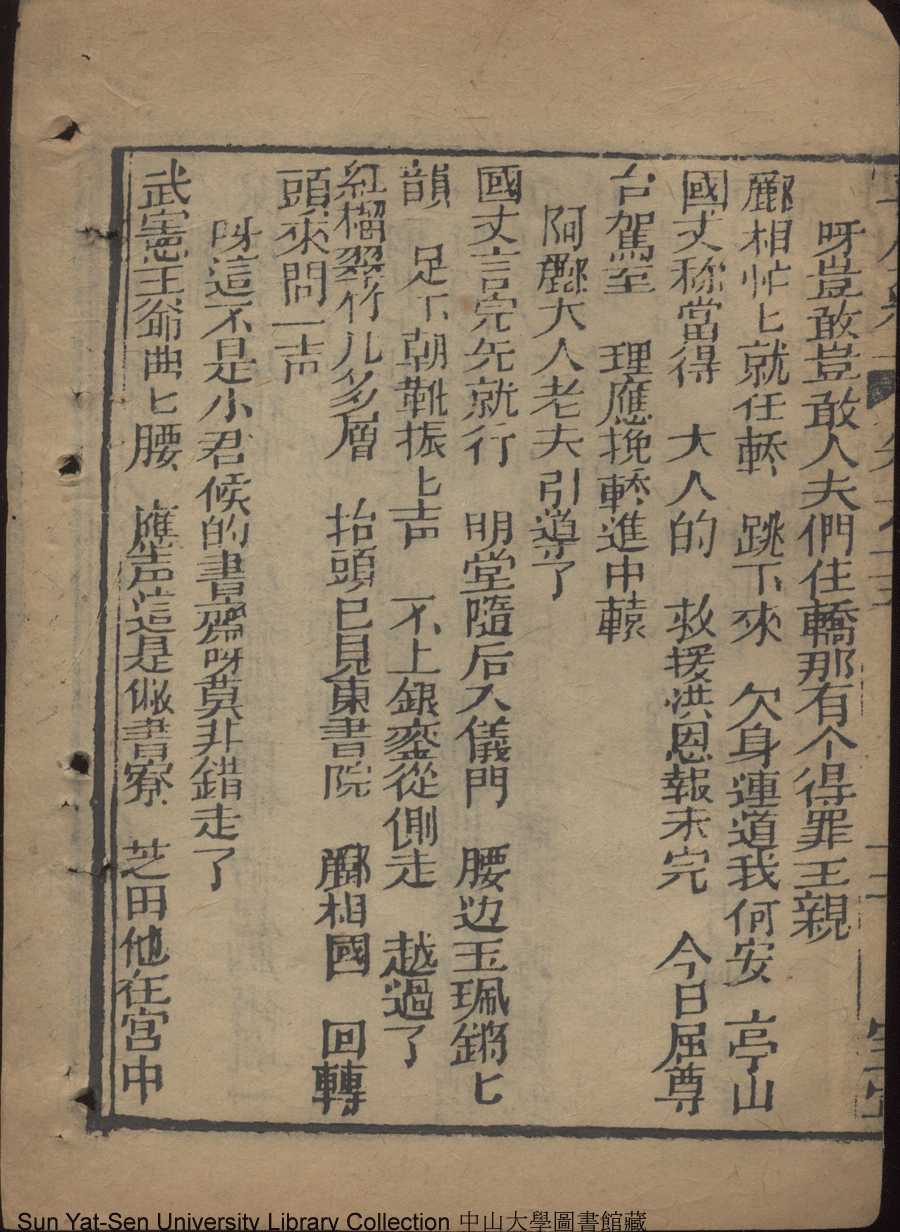 呀豈敢豈敢人夫們住轎那有个得罪王親
酈相忙匕就任轎 跳下來 欠身連道我何安 亭山
國丈称當得 大人的 救援洪恩報未完 今日屈尊
台駕至 理應挽轎進中轅
阿酈大人老夫引導了
國丈言完先就行 明堂隨后入儀門 腰边玉珮鏘匕
韻 足下朝靴振匕声 不上銀鑾從側走 越過了
紅榴翠竹儿多層 抬頭已見東書院 酈相國 回轉
頭來問一声
呀這不是小君候的書齋呀莫非錯走了
武憲王爺曲匕腰 應声這是僘書寮 芝田他在宮中
Sun Yat-Sen University Library Collection 中山大學圖書館藏